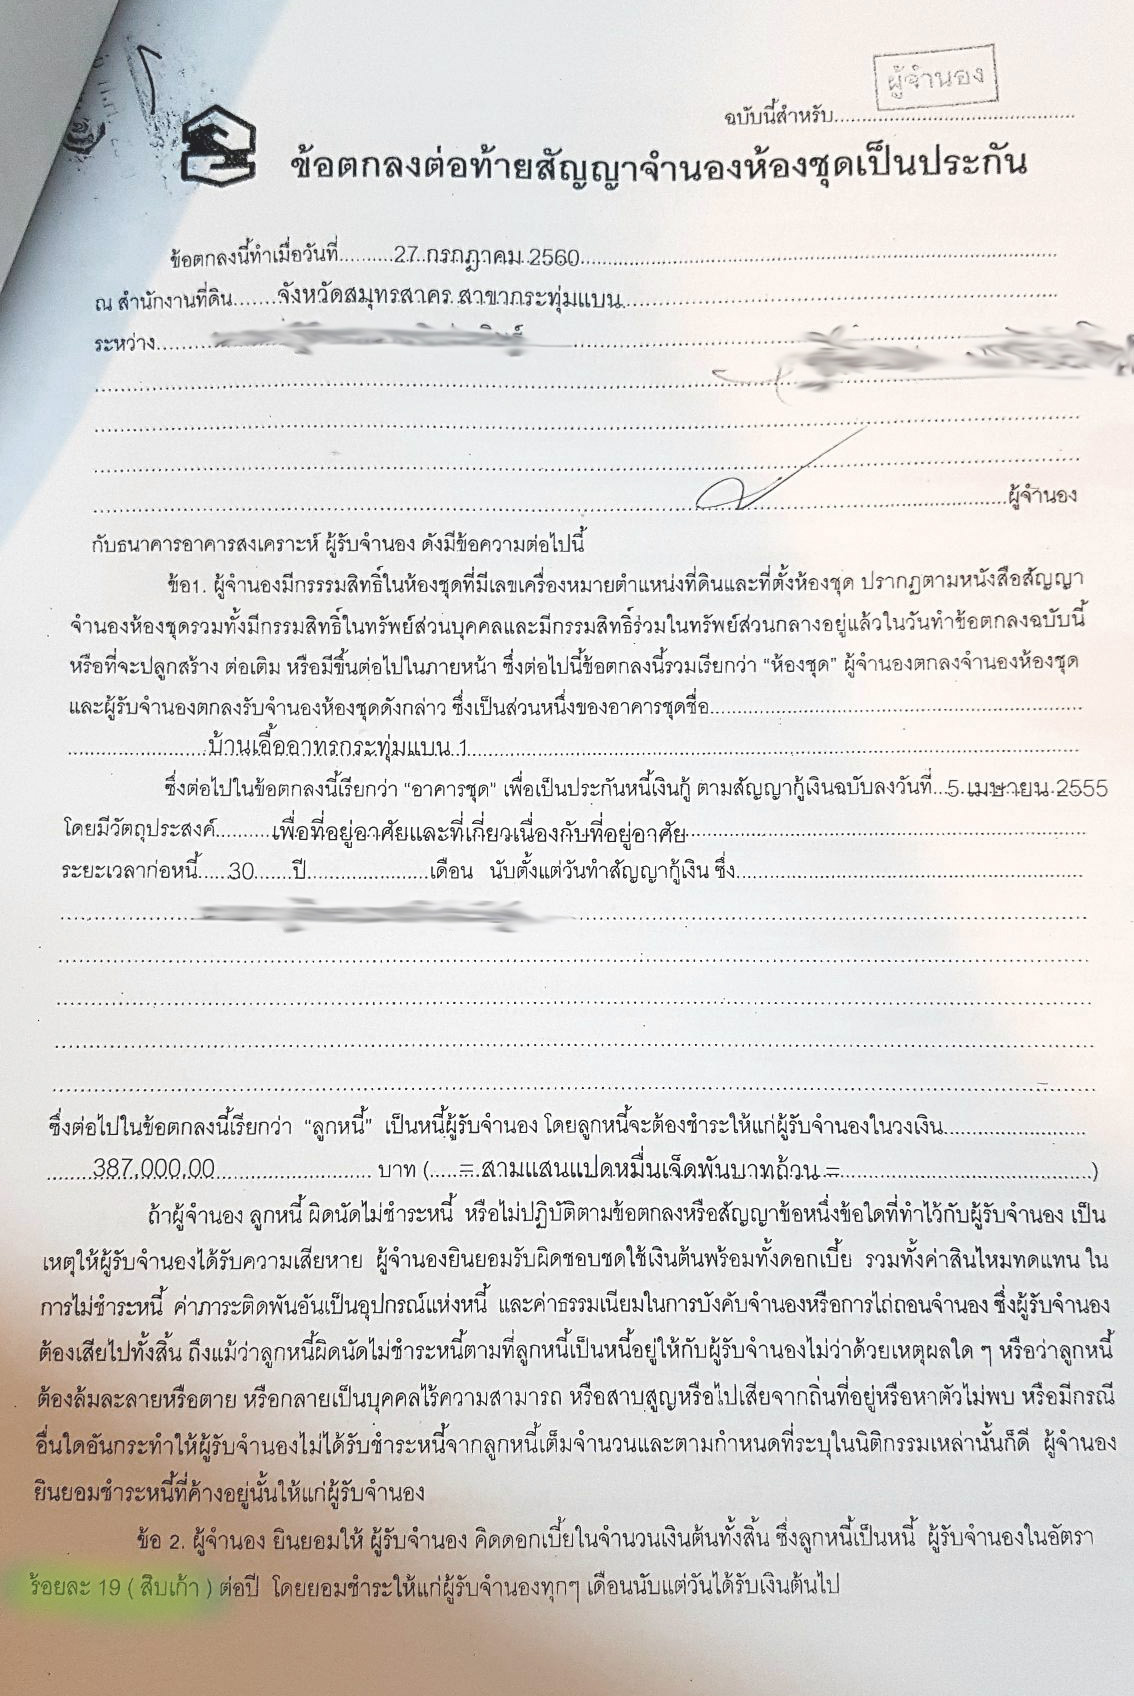 ผู้จำนอง
ฉบับนี้สำหรับ
ข้อตกลงต่อท้ายสัญญาจำนองห้องชุดเป็นประกัน
ข้อตกลงนี้ทำเมื่อวันที่ 27 กรกฎาคม 2560
ณ สำนักงานที่ดิน จังหวัดสมุทรสาคร สาขากระทุ่มแบน
ระหว่าง
ผู้จำนอง
กับธนาคารอาคารสงเคราะห์ ผู้รับจำนอง ดังมีข้อความต่อไปนี้
ข้อ1. ผู้จำนองมีกรรมสิทธิ์ในห้องชุดที่มีเลขเครื่องหมายตำแหน่งที่ดินและที่ตั้งห้องชุด ปรากฏตามหนังสือสัญญา
จำนองห้องชุดรวมทั้งมีกรรมสิทธิ์ในทรัพย์ส่วนบุคคลและมีกรรมสิทธิ์ร่วมในทรัพย์ส่วนกลางอยู่แล้วในวันทำข้อตกลงฉบับนี้
หรือที่จะปลูกสร้าง ต่อเติม หรือมีขึ้นต่อไปในภายหน้า ซึ่งต่อไปนี้ข้อตกลงนี้รวมเรียกว่า “ห้องชุด” ผู้จำนองตกลงจำนองห้องชุด
และผู้รับจำนองตกลงรับจำนองห้องชุดดังกล่าว ซึ่งเป็นส่วนหนึ่งของอาคารชุดชื่อ
บ้านเอื้ออาทรกระทุ่มแบน 1
ซึ่งต่อไปในข้อตกลงนี้เรียกว่า “อาคารชุด” เพื่อเป็นประกันหนี้เงินกู้ ตามสัญญากู้เงินฉบับลงวันที่ 5 เมษายน 2555
โดยมีวัตถุประสงค์ เพื่อที่อยู่อาศัยและที่เกี่ยวเนื่องกับที่อยู่อาศัย
ระยะเวลาก่อหนี้ 30 ปี เดือน นับตั้งแต่วันทำสัญญากู้เงิน ซึ่ง
ซึ่งต่อไปในข้อตกลงนี้เรียกว่า “ลูกหนี้” เป็นหนี้ผู้รับจำนอง โดยลูกหนี้จะต้องชำระให้แก่ผู้รับจำนองในวงเงิน
387,000.00 บาท ( = สามแสนแปดหมื่นเจ็ดพันบาทถ้วน = )
ถ้าผู้จำนอง ลูกหนี้ ผิดนัดไม่ชำระหนี้ หรือไม่ปฏิบัติตามข้อตกลงหรือสัญญาข้อหนึ่งข้อใดที่ทำไว้กับผู้รับจำนอง เป็น
เหตุให้ผู้รับจำนองได้รับความเสียหาย ผู้จำนองยินยอมรับผิดชอบชดใช้เงินต้นพร้อมทั้งดอกเบี้ย รวมทั้งค่าสินไหมทดแทน ใน
การไม่ชำระหนี้ ค่าภาระติดพันอันเป็นอุปกรณ์แห่งหนี้ และค่าธรรมเนียมในการบังคับจำนองหรือการไถ่ถอนจำนอง ซึ่งผู้รับจำนอง
ต้องเสียไปทั้งสิ้น ถึงแม้ว่าลูกหนี้ผิดนัดไม่ชำระหนี้ตามที่ลูกหนี้เป็นหนี้อยู่ให้กับผู้รับจำนองไม่ว่าด้วยเหตุผลใด ๆ หรือว่าลูกหนี้
ต้องล้มละลายหรือตาย หรือกลายเป็นบุคคลไร้ความสามารถ หรือสาบสูญหรือไปเสียจากถิ่นที่อยู่หรือหาตัวไม่พบ หรือมีกรณี
อื่นใดอันกระทำให้ผู้รับจำนองไม่ได้รับชำระหนี้จากลูกหนี้เต็มจำนวนและตามกำหนดที่ระบุในนิติกรรมเหล่านั้นก็ดี ผู้จำนอง
ยินยอมชำระหนี้ที่ค้างอยู่นั้นให้แก่ผู้รับจำนอง
ข้อ 2. ผู้จำนอง ยินยอมให้ ผู้รับจำนอง คิดดอกเบี้ยในจำนวนเงินต้นทั้งสิ้น ซึ่งลูกหนี้เป็นหนี้ ผู้รับจำนองในอัตรา
ร้อยละ 19 ( สิบเก้า ) ต่อปี โดยยอมชำระให้แก่ผู้รับจำนองทุกๆ เดือนนับแต่วันได้รับเงินต้นไป